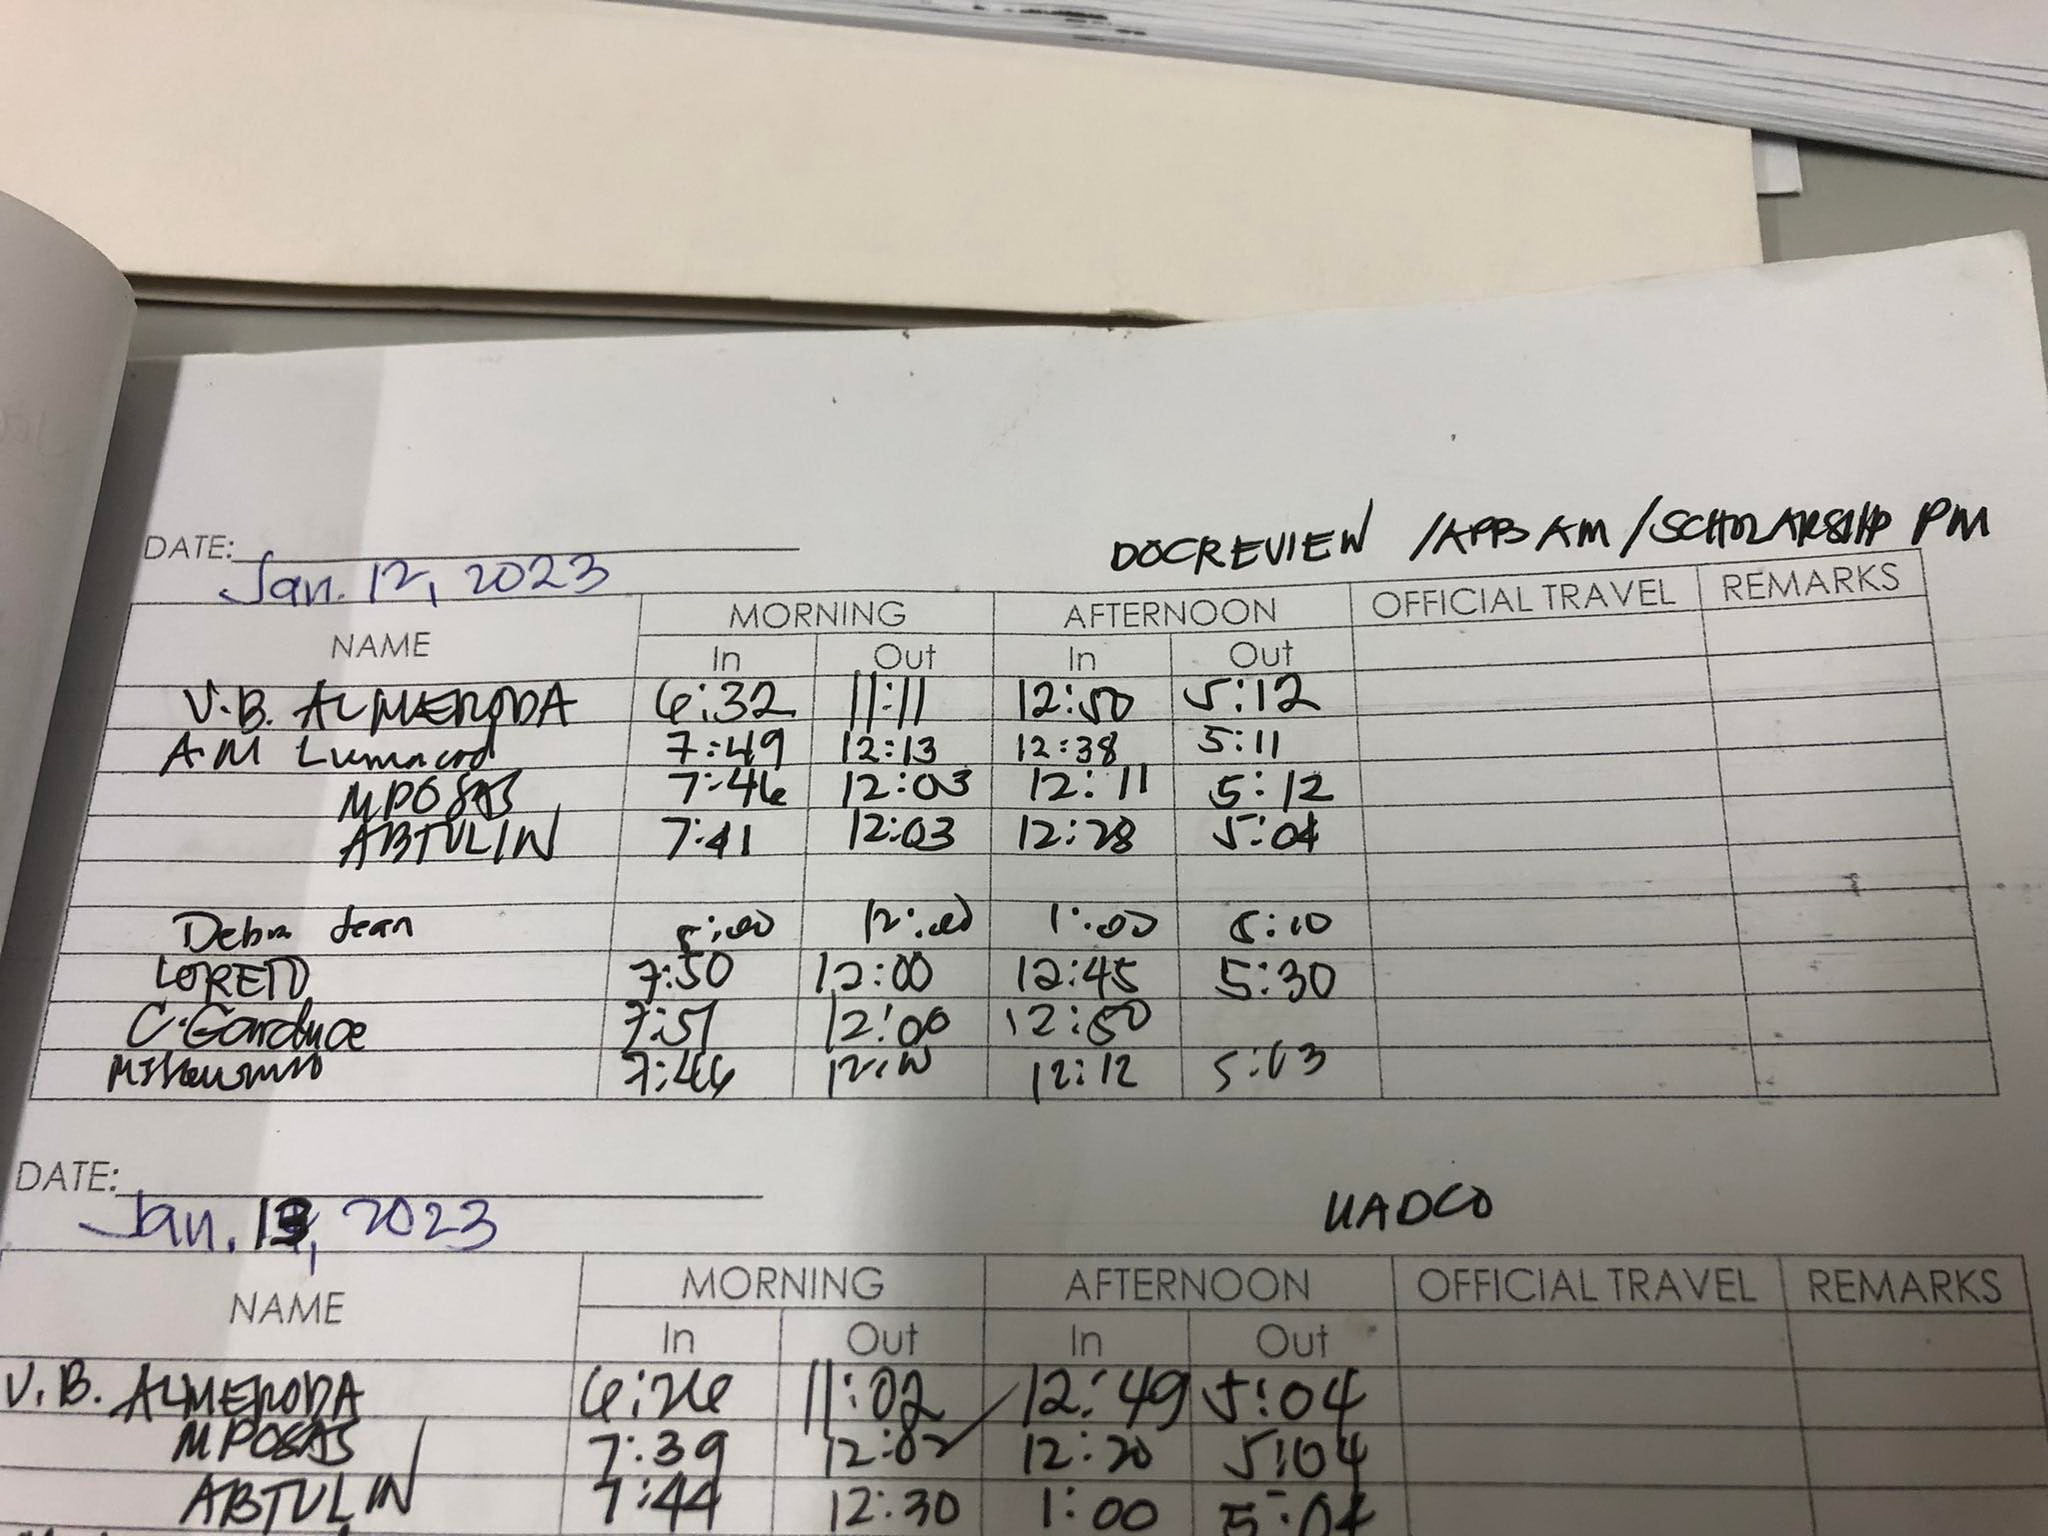 DOCREVIEW /APPB AM/SCHOLARSHIP PM
DATE: Jan. 12, 2023
NAME MORNING AFTERNOON OFFICIAL TRAVEL REMARKS
In Out In Out
V.B. ALMERODA 6:32 11:11 12:50 5:12
A.M Lumacad 7:49 12:13 12:38 5:11
MPOSAS 7:46 12:03 12:11 5:12
ABTULIN 7:41 12:03 12:28 5:04
Debra Jean 12:00 1:00 5:10
LORETO 7:50 12:00 12:45 5:30
C. Garduce 7:51 12:00 12:50
7:46 12:12 5:03
DATE: Jan. 13, 2023
UADCO
NAME MORNING AFTERNOON OFFICIAL TRAVEL REMARKS
In Out In Out
V.B. ALMERODA 6:26 11:02 12:49 5:04
MPOSAS 7:39 12:02 12:20 5:04
ABTULIN 7:44 12:30 1:00 5:04